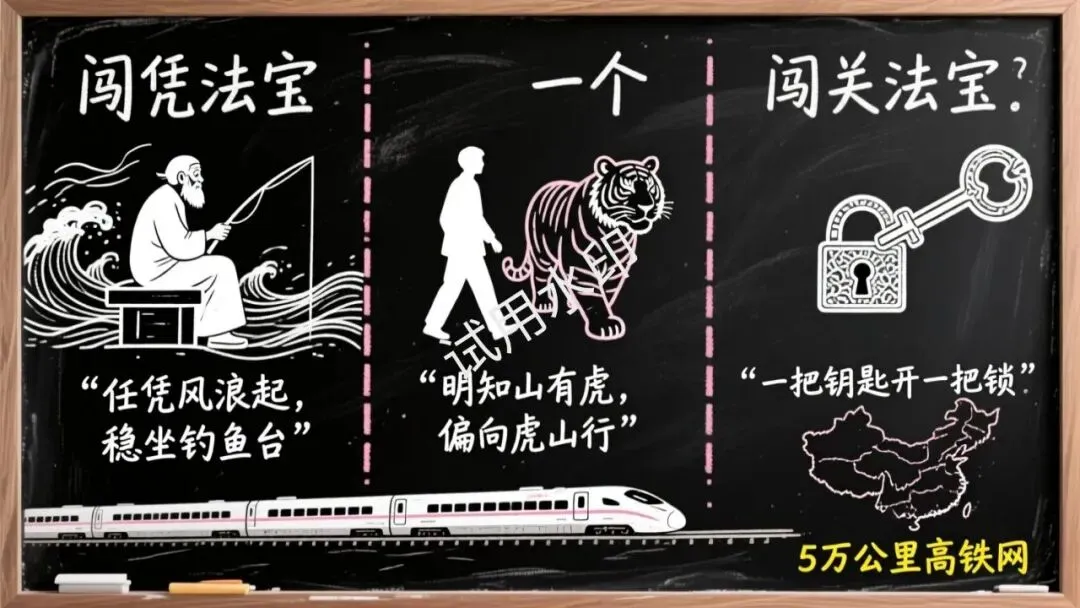 闯凭法宝
一个
闯关法宝?
“任凭风浪起，
稳坐钓鱼台”
“明知山有虎，
偏向虎山行”
“一把钥匙开一把锁”
5万公里高铁网
试用水印